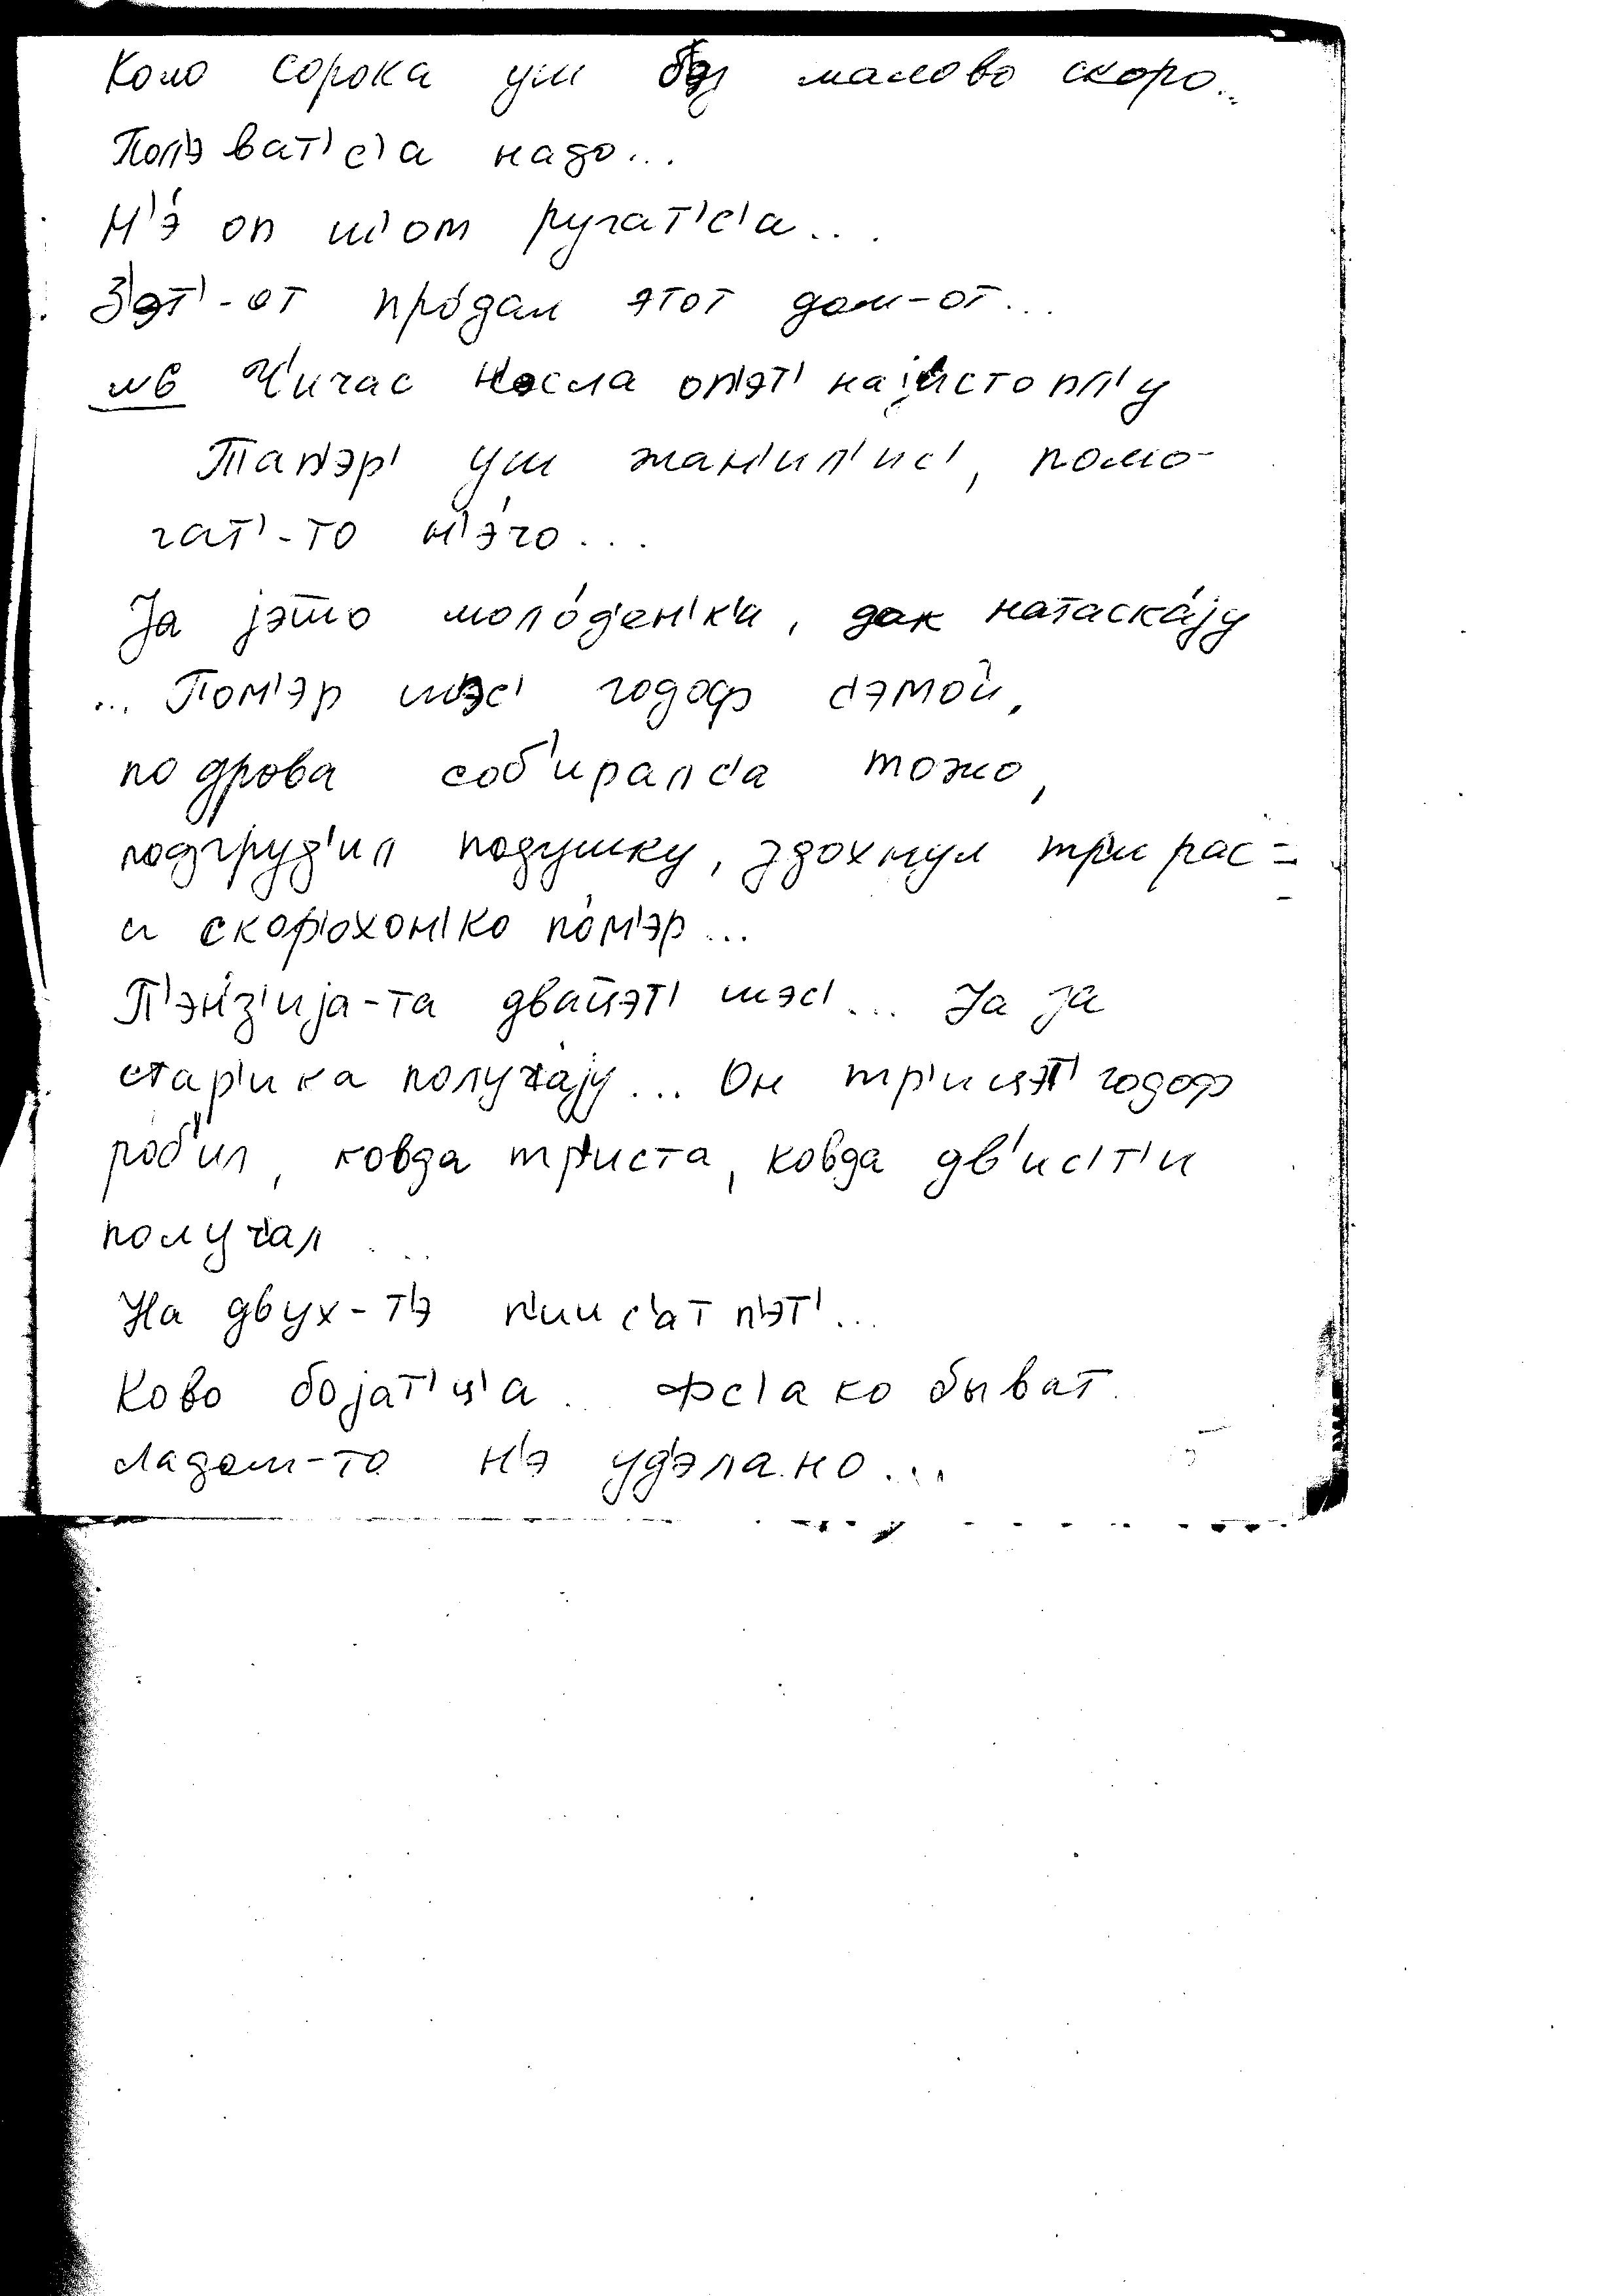 Коло сорока уш без малово скоро...
Пол'э ват'с'а надо...
Н'э́ оп ш'ом ругат'с'а...
З'эт'-от про́дал этот дом-от...
мв Ч'ичас н'осла оп'эт' на
Тап'эр' уш жан'ил'ис', помо-
гат'-то н'э́чо...
Ја јэто моло́д'ен'к'а, дак натаска́ју
... Пом'эр шэс' годоф с'эмой,
по дрова соб'иралс'а тожо,
подгруд'ил подушку, здохнул тр'и рас-
и скор'охон'ко по́м'эр...
П'э́нз'ија-та двацэт' шэс'... За ја
стар'ика получ'а́ју... Он тр'ицэт' годоф
роб'ил, ковда тр'иста, ковда дв'ис'т'и
получ'ал ...
На двух-т'э п'иис'ат п'эт'...
Ково бојат'ц'а... фс'ако быват.
Ладом-то н'э уд'элано...